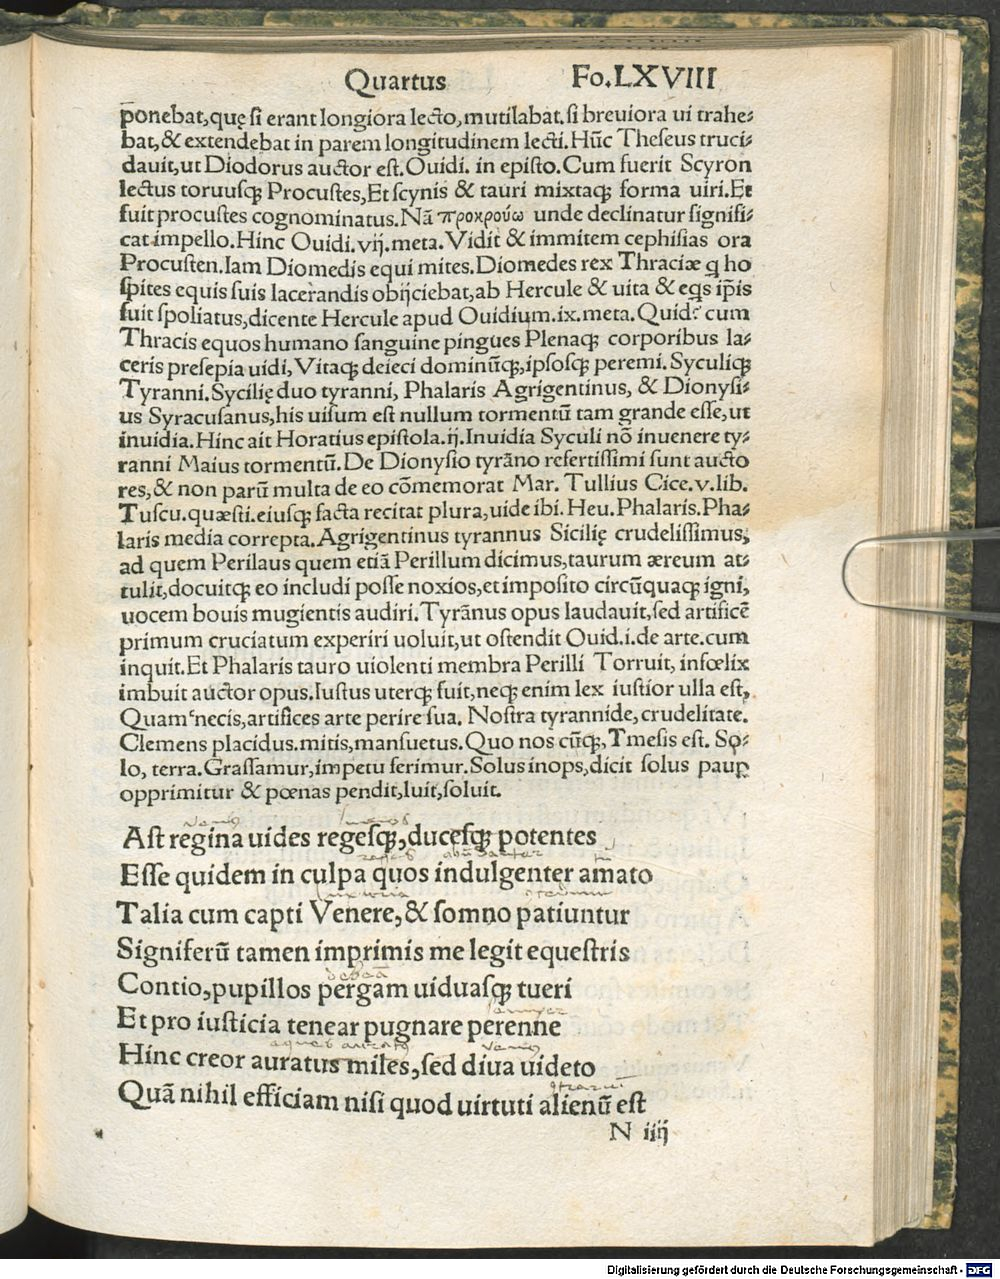 Quartus Fo.LXVIII
p̄onebat,quę si erant longiora lecto,mutilabat.si breuiora ui trahe⸗
bat,& extendebat in parem longitudinem lecti.Hūc Theseus truci⸗
dauit,ut Diodorus auctor est.Ouidi. in episto.Cum fuerit Scyron
lectus toruusqꝫ Procustes,Et scynis & tauri mixtaqꝫ forma uiri.Et
fuit procustes cognominatus.Nā προκρούω unde declinatur signifi⸗
cat impello.Hinc Ouidi.vij.meta.Vidit & immitem cephisias ora
Procusten.Iam Diomedis equi mites.Diomedes rex Thraciæ q ho
spites equis suis lacerandis obijciebat,ab Hercule & uita & eqs ip̄is
fuit spoliatus,dicente Hercule apud Ouidium.ix.meta.Quid? cum
Thracis equos humano sanguine pingues Plenaqꝫ corporibus la⸗
ceris presepia uidi, Vitaqꝫ deieci dominūqꝫ,ipsosqꝫ peremi.Syculiqꝫ
Tyranni.Sycilię duo tyranni, Phalaris Agrigentinus, & Dionysi⸗
us Syracusanus,his uisum est nullum tormentū tam grande esse,ut
inuidia.Hinc ait Horatius epistola.ij.Inuidia Syculi nō inuenere ty⸗
ranni Maius tormentū.De Dionysio tyrāno refertissimi sunt aucto
res,& non parū multa de eo cōmemorat Mar. Tullius Cice.v.lib.
Tuscu.quæsti.eiusqꝫ facta recitat plura,uide ibi.Heu.Phalaris.Pha⸗
laris media correpta.Agrigentinus tyrannus Sicilię crudelissimus,
ad quem Perilaus quem etiā Perillum dicimus,taurum æreum at⸗
tulit,docuitqꝫ eo includi posse noxios,et imposito circūquaqꝫ igni,
uocem bouis mugientis audiri.Tyrānus opus laudauit,sed artificē
primum cruciatum experiri uoluit,ut ostendit Ouid.i.de arte.cum
inquit.Et Phalaris tauro uiolenti membra Perilli Torruit, infœlix
imbuit auctor opus.Iustus uterqꝫ fuit,neqꝫ enim lex iustior ulla est,
Quam necis,artifices arte perire sua. Nostra tyrannide,crudelitate.
Clemens placidus.mitis,mansuetus.Quo nos cūqꝫ,Tmesis est. So⸗
lo, terra.Grassamur,impetu ferimur.Solus inops,dicit solus paup
opprimitur & pœnas pendit,luit,soluit.
Ast regina uides regesqꝫ,ducesqꝫ potentes
Esse quidem in culpa quos indulgenter amato
Talia cum capti Venere,& somno patiuntur
Signiferū tamen imprimis me legit equestris
Contio,pupillos pergam uiduasqꝫ tueri
semper
Et pro iusticia tenear pugnare perenne
Hinc creor auratus miles,sed diua uideto
Quā nihil efficiam nisi quod uirtuti alienū est
N iiij
Digitalisierung gefördert durch die Deutsche Forschungsgemeinschaft - DFG